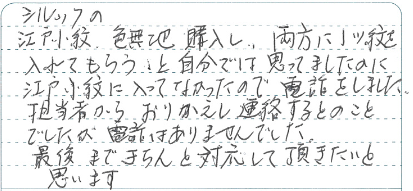 シルックの
江戸小紋 色無地 購入し、両方に1ツ紋を
入れてもらうと自分では思ってましたのに
江戸小紋に入ってなかったので電話をしました。
担当者から おりかえし連絡するとのこと
でしたが電話はありませんでした。
最後まできちんと対応して頂きたいと
思います